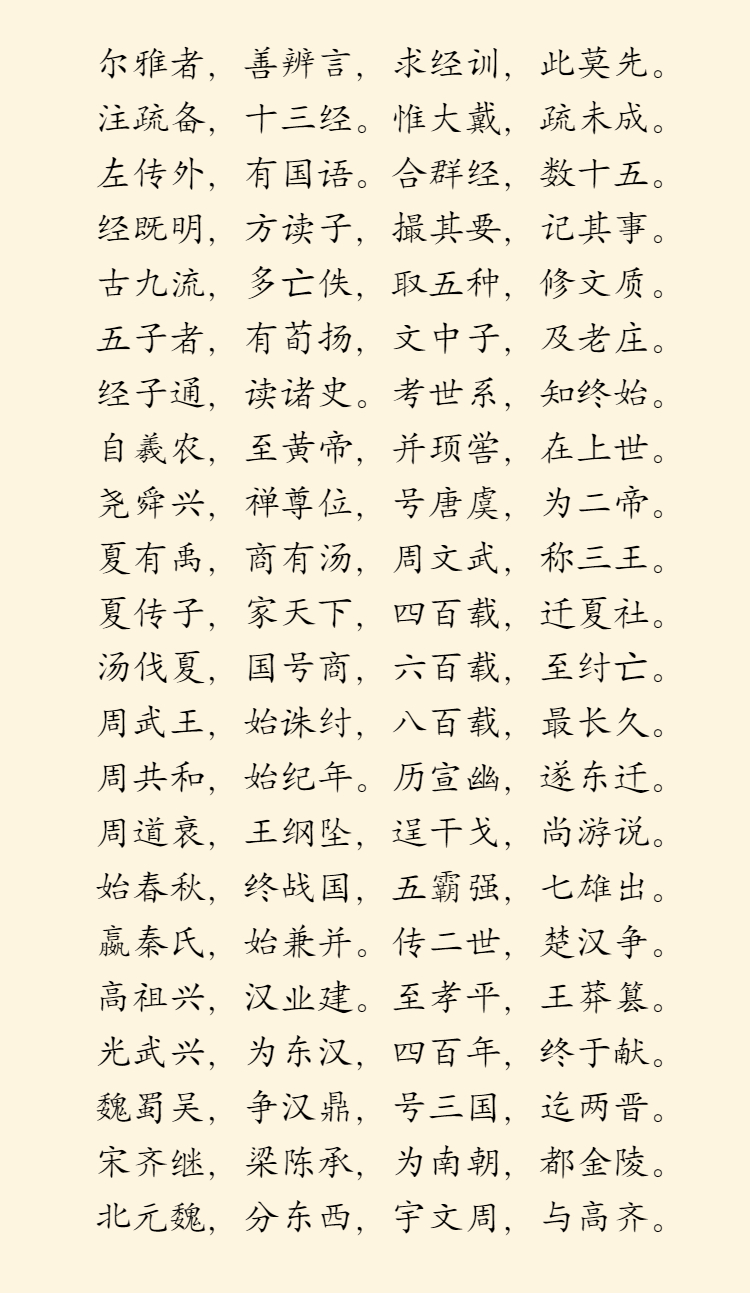 尔雅者，善辨言，求经训，此莫先。
注疏备，十三经。惟大戴，疏未成。
左传外，有国语。合群经，数十五。
经既明，方读子，撮其要，记其事。
古九流，多亡佚，取五种，修文质。
五子者，有荀扬，文中子，及老庄。
经子通，读诸史。考世系，知终始。
自羲农，至黄帝，并顼喾，在上世。
尧舜兴，禅尊位，号唐虞，为二帝。
夏有禹，商有汤，周文武，称三王。
夏传子，家天下，四百载，迁夏社。
汤伐夏，国号商，六百载，至纣亡。
周武王，始诛纣，八百载，最长久。
周共和，始纪年。历宣幽，遂东迁。
周道衰，王纲坠，逞干戈，尚游说。
始春秋，终战国，五霸强，七雄出。
嬴秦氏，始兼并。传二世，楚汉争。
高祖兴，汉业建。至孝平，王莽篡。
光武兴，为东汉，四百年，终于献。
魏蜀吴，争汉鼎，号三国，迄两晋。
宋齐继，梁陈承，为南朝，都金陵。
北元魏，分东西，宇文周，与高齐。